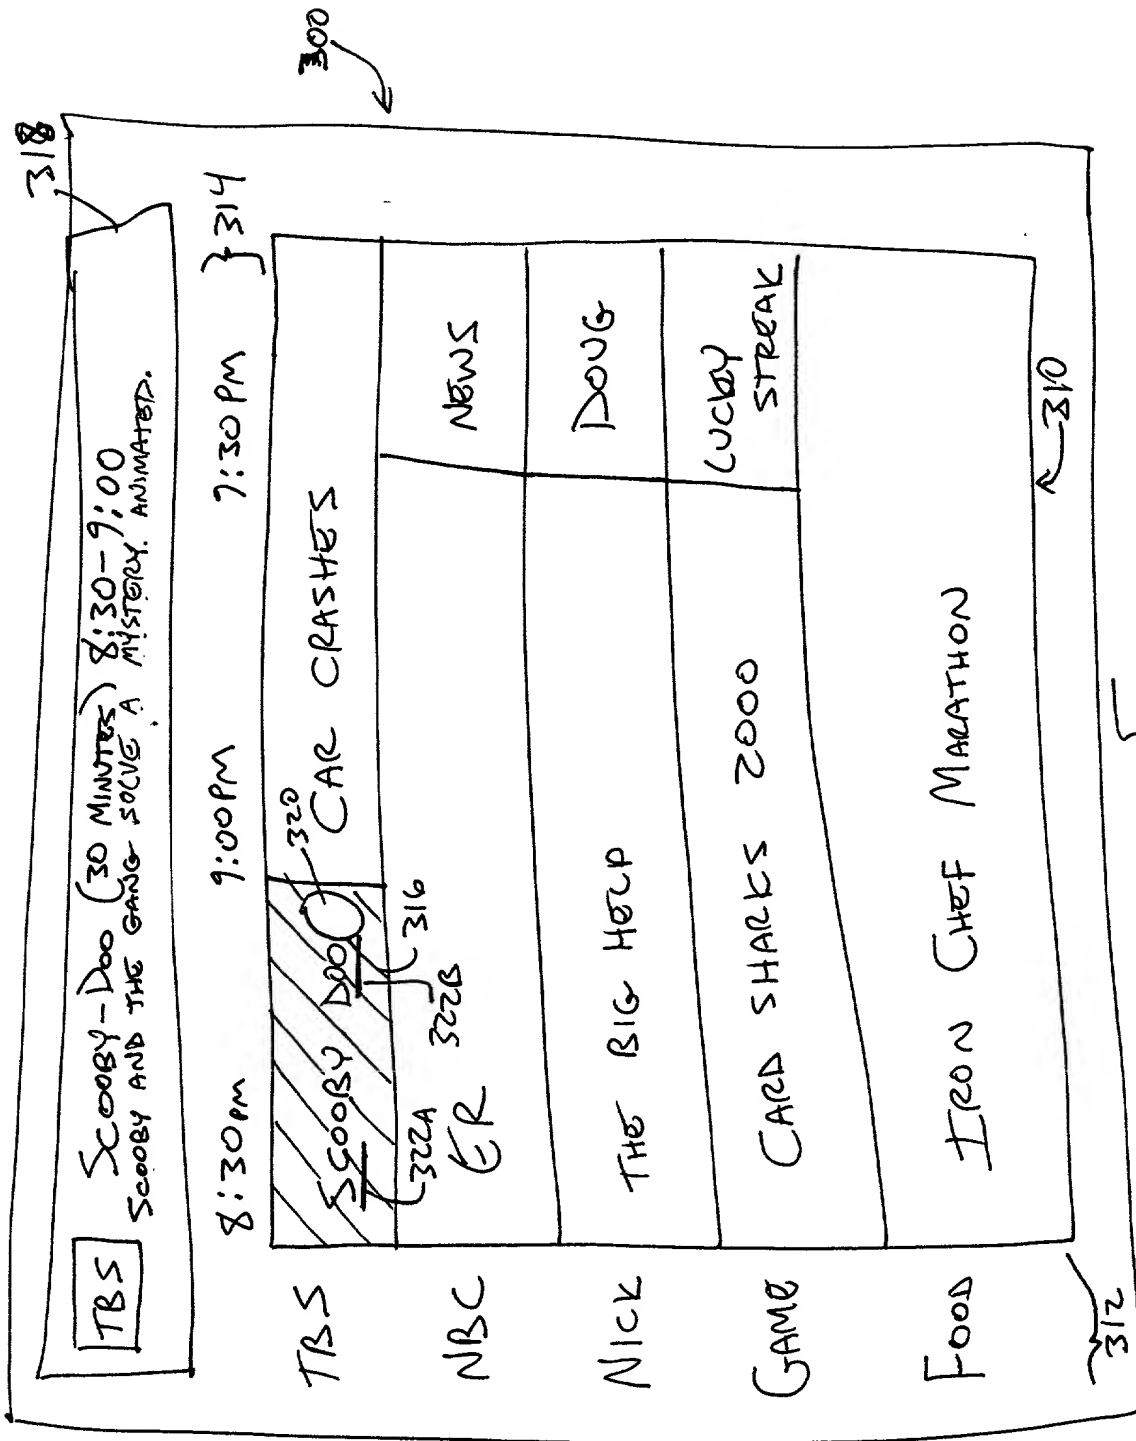 300
318
TBS SCOOBY-DOO (30 MINUTES) 8:30-9:00
SCOOBY AND THE GANG SOLVE A MYSTERY. ANIMATED.
8:30PM 9:00PM 9:30PM } 314
TBS SCOOBY DOO 320 CAR CRASHES
322A 322B 316
NBC ER NEWS
NICK THE BIG HELP DOUG
GAME CARD SHARKS 2000 LUCKY STREAK
FOOD IRON CHEF MARATHON
312 310